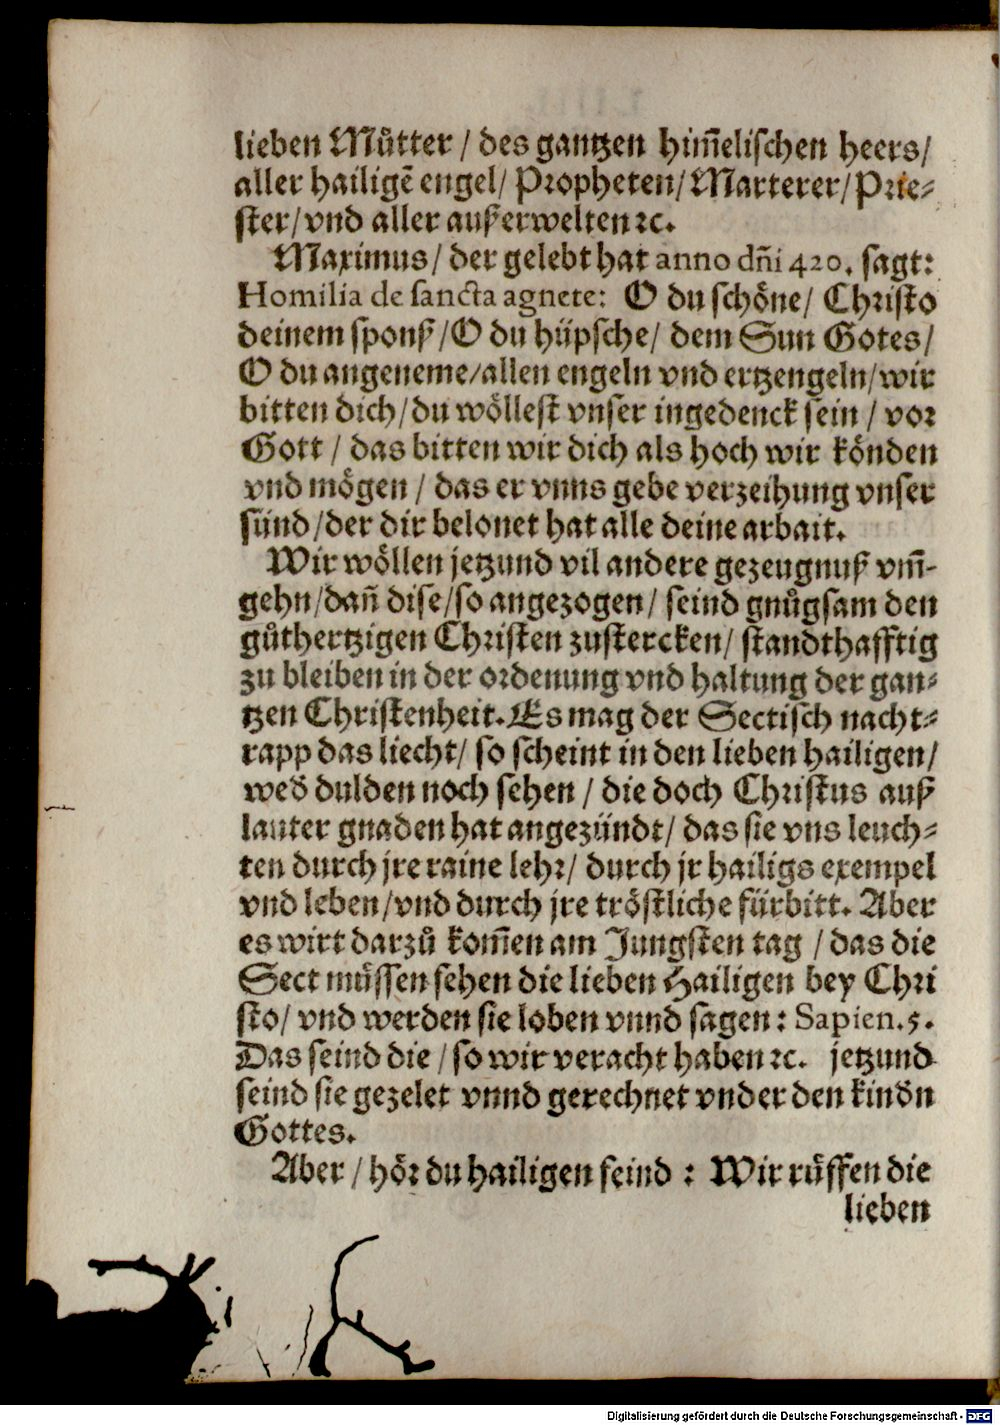 lieben Můtter / des gantzen him̃elischen heers /
aller hailigẽ engel / Propheten / Marterer / Prie⸗
ster / vnd aller außerwelten ꝛc.
Maximus / der gelebt hat anno dñi 420. sagt:
Homilia de sancta agnete: O du schöne / Christo
deinem sponß / O du hüpsche / dem Sun Gotes /
O du angeneme / allen engeln vnd ertzengeln / wir
bitten dich / du wöllest vnser ingedenck sein / vor
Gott / das bitten wir dich als hoch wir könden
vnd mögen / das er vnns gebe verzeihung vnser
sünd / der dir belonet hat alle deine arbait.
Wir wöllen jetzund vil andere gezeugnuß vm̃-
gehn / dañ dise / so angezogen / seind gnůgsam den
gůthertzigen Christen zustercken / standthafftig
zu bleiben in der ordenung vnd haltung der gan⸗
tzen Christenheit. Es mag der Sectisch nacht⸗
rapp das liecht / so scheint in den lieben hailigen /
wed̕ dulden noch sehen / die doch Christus auß
lauter gnaden hat angezündt / das sie vns leuch⸗
ten durch jre raine lehr / durch jr hailigs exempel
vnd leben / vnd durch jre tröstliche fürbitt. Aber
es wirt darzů kom̃en am Jungsten tag / das die
Sect müssen sehen die lieben Hailigen bey Chri
sto / vnd werden sie loben vnnd sagen: Sapien. 5.
Das seind die / so wir veracht haben ꝛc. jetzund
seind sie gezelet vnnd gerechnet vnder den kind̕n
Gottes.
Aber / hör du hailigen feind : Wir rüffen die
lieben
Digitalisierung gefördert durch die Deutsche Forschungsgemeinschaft - DFG